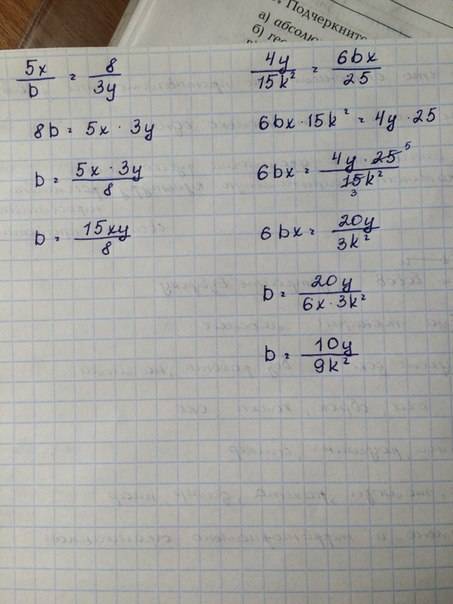 Подчеркните
а) абсолю
б) гес
5x/b = 8/3y
8b = 5x · 3y
b = 5x · 3y/8
b = 15xy/8
4y/15k² = 6bx/25
6bx · 15k² = 4y · 25
6bx = 4y · 25 5/15k² 3
6bx = 20y/3k²
b = 20y/6x · 3k²
b = 10y/9k²